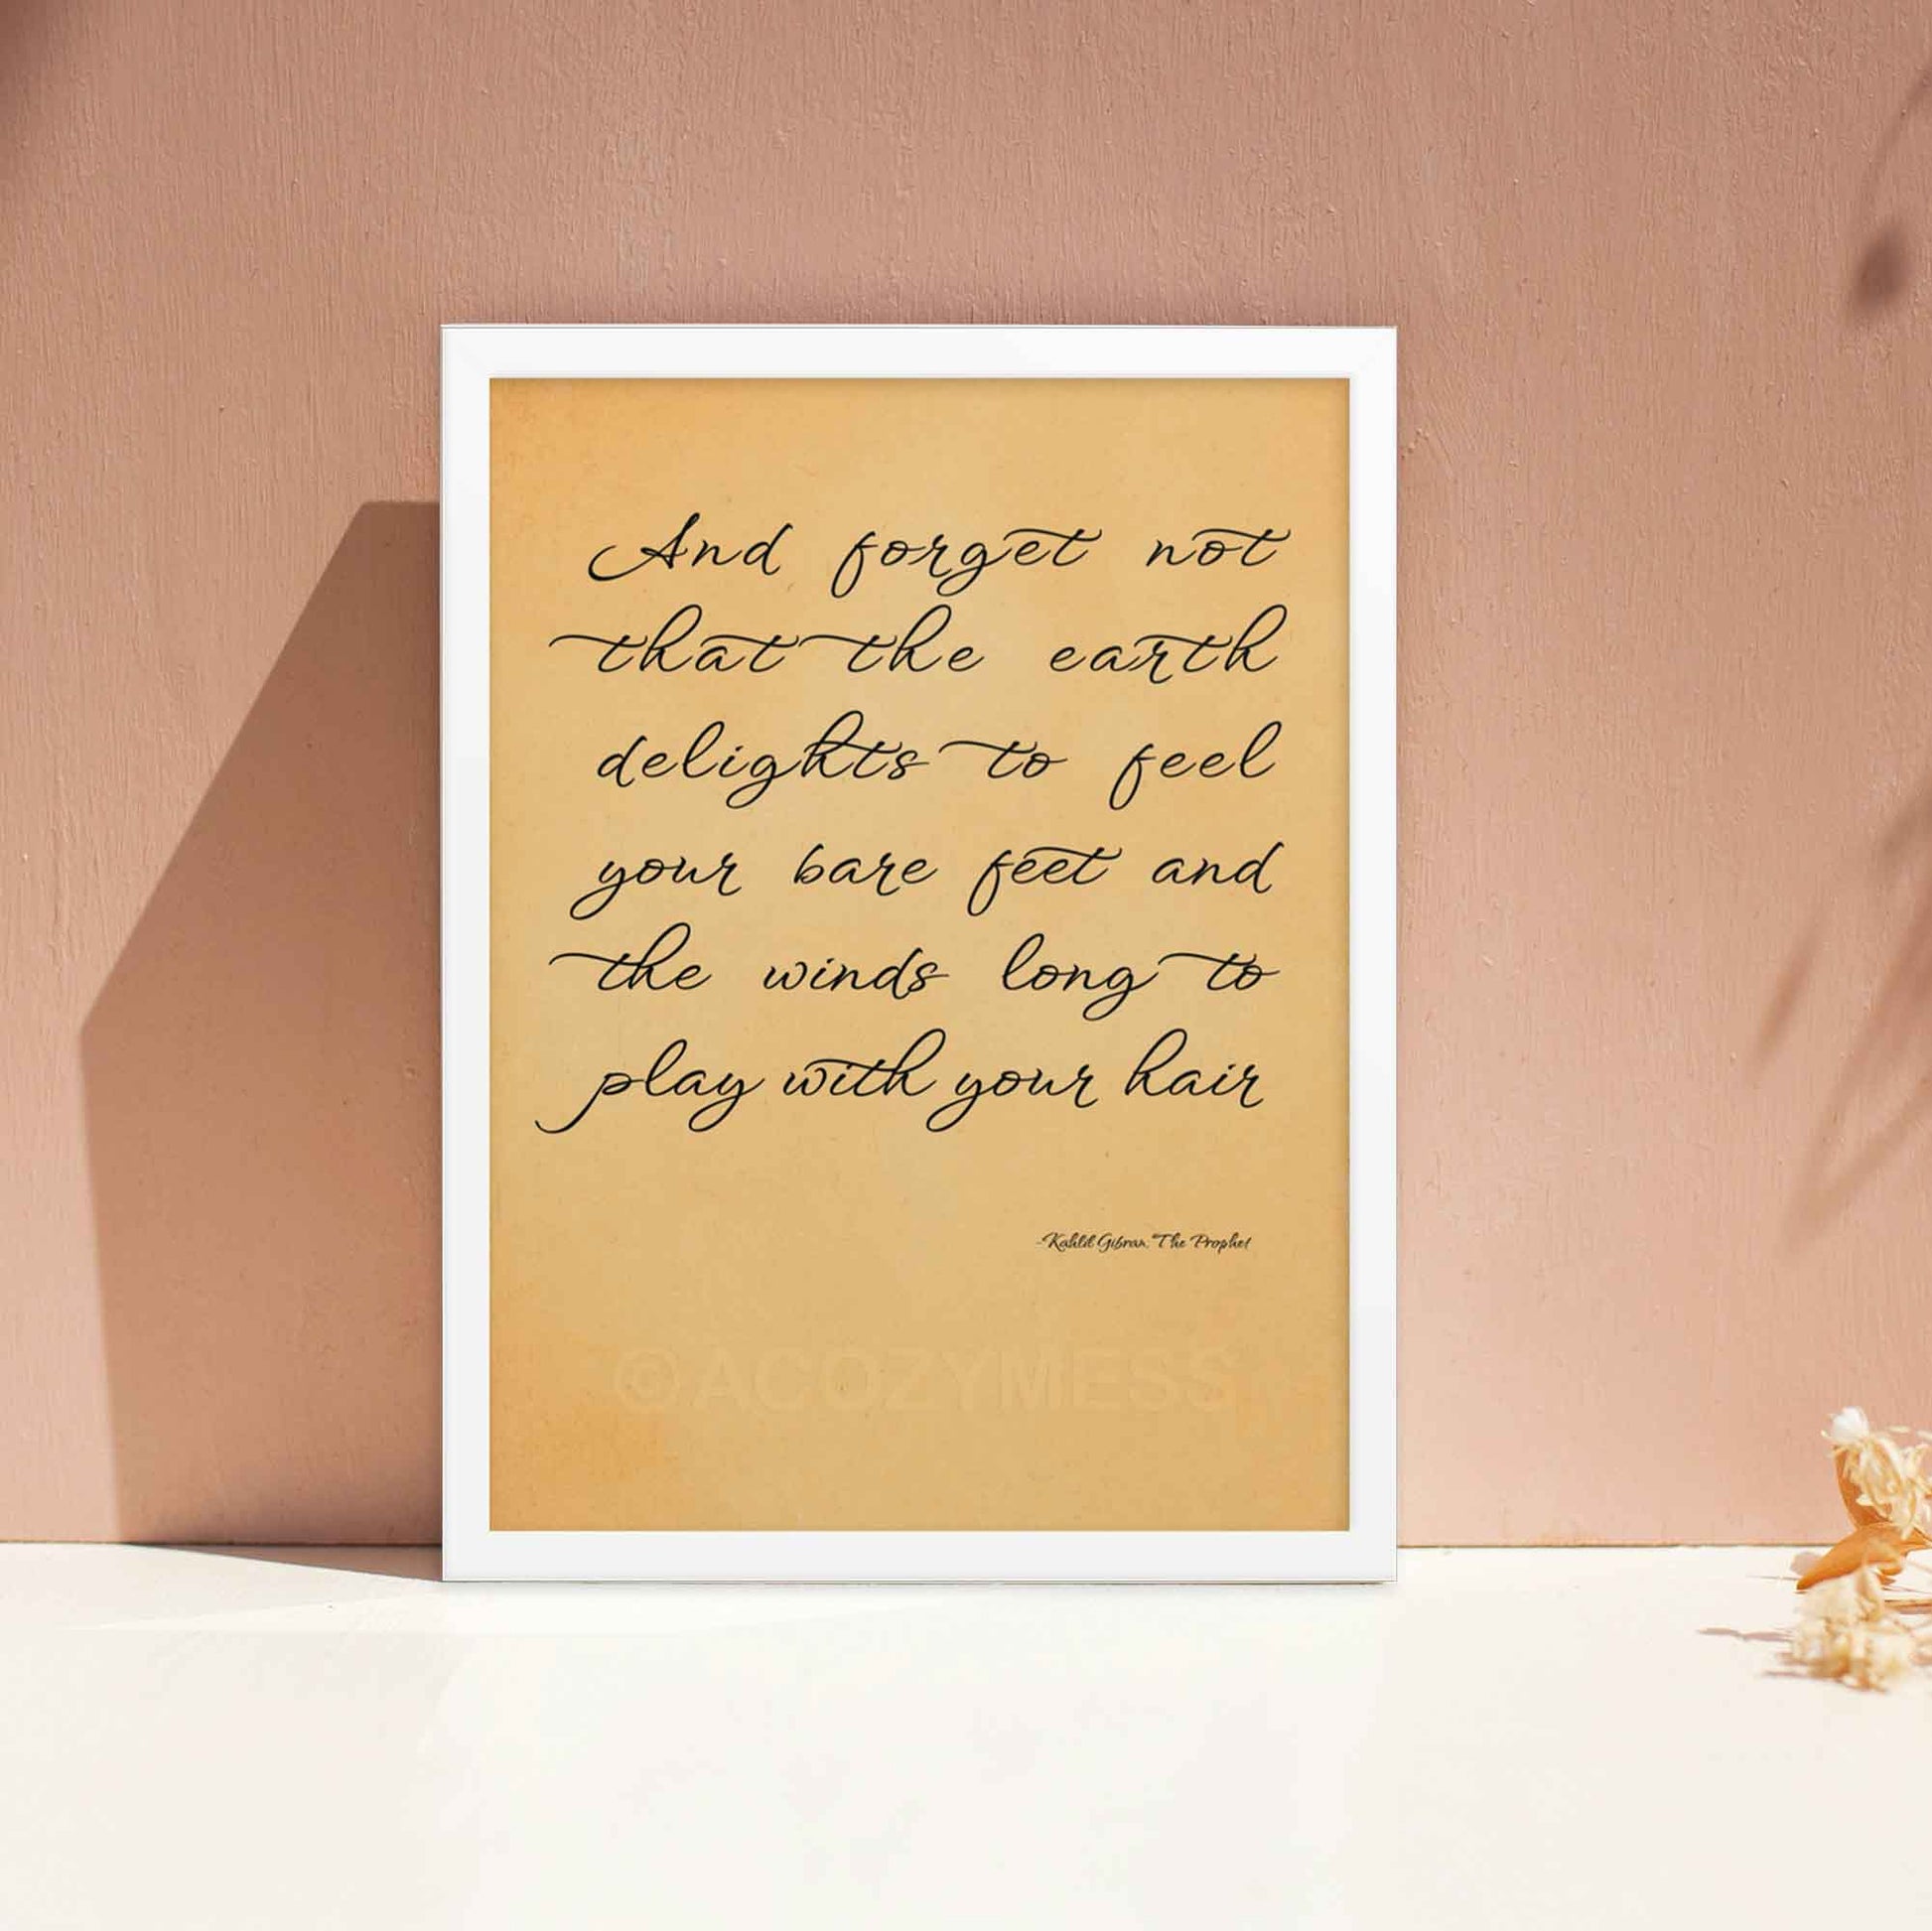 And forget not
that the earth
delights to feel
your bare feet and
the winds long to
play with your hair
-Kahlil Gibran, The Prophet
©ACOZYMESS